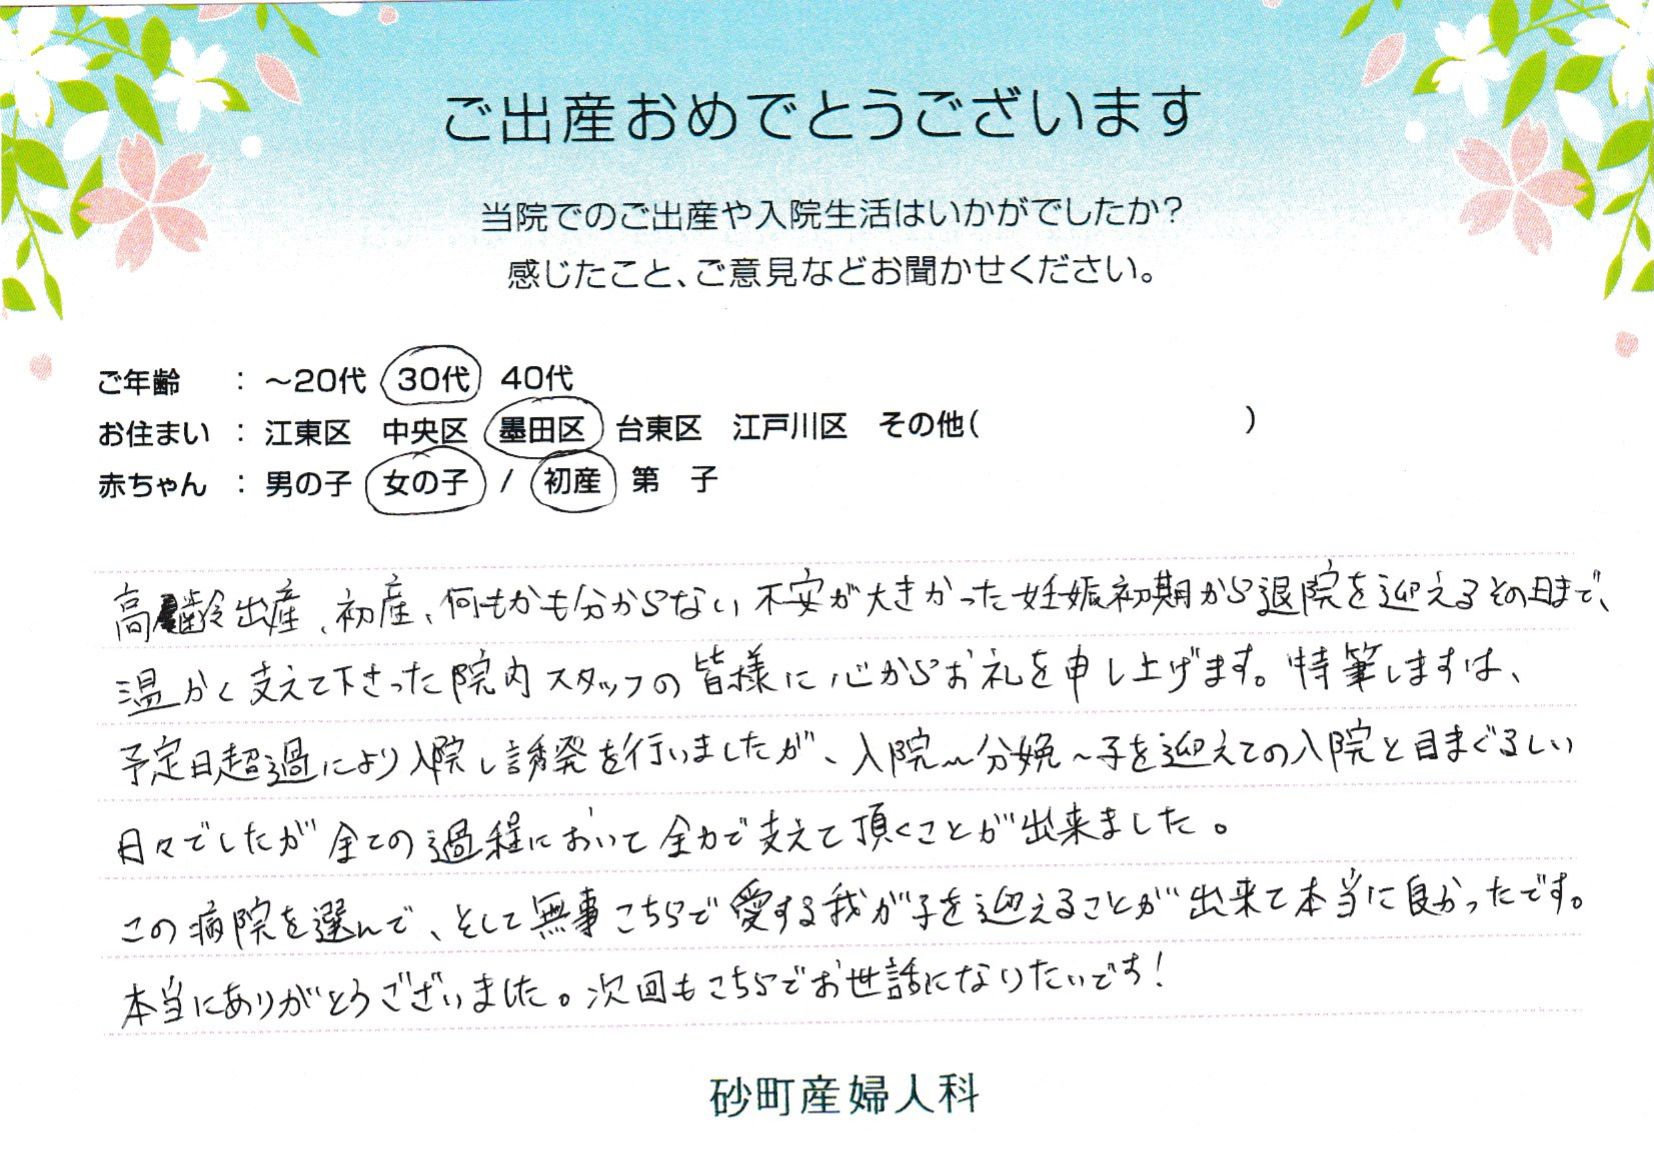 ご出産おめでとうございます
当院でのご出産や入院生活はいかがでしたか?
感じたこと、ご意見などお聞かせください。
ご年齢 : ～20代 30代 40代
お住まい : 江東区 中央区 墨田区 台東区 江戸川区 その他( )
赤ちゃん : 男の子 女の子 / 初産 第 子
高齢出産、初産、何もかも分からない不安が大きかった妊娠初期から退院を迎えるその日まで、
温かく支えて下さった院内スタッフの皆様に心からお礼を申し上げます。特筆しますは、
予定日超過により入院し誘発を行いましたが、入院～分娩～子を迎えての入院と目まぐるしい
日々でしたが全ての過程において全力で支えて頂くことが出来ました。
この病院を選んで、そして無事こちらで愛する我が子を迎えることが出来て本当に良かったです。
本当にありがとうございました。次回もこちらでお世話になりたいです!
砂町産婦人科